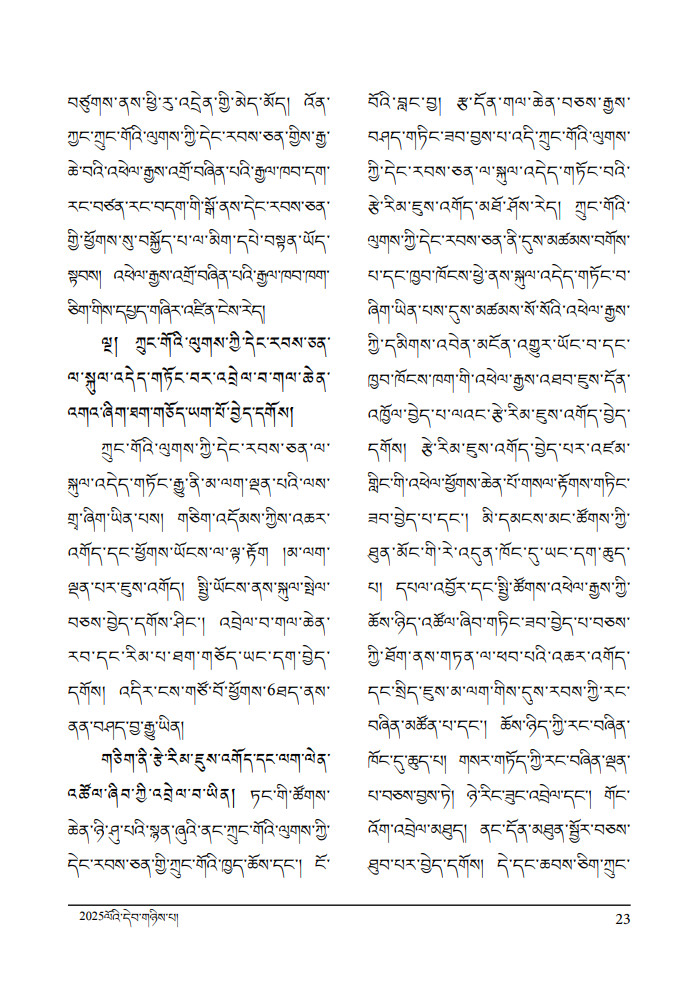 བཙུགས་ནས་ཕྱི་རུ་འདྲེན་གྱི་མེད་མོད། འོན་
ཀྱང་ཀྲུང་གོའི་ལུགས་ཀྱི་དེང་རབས་ཅན་གྱིས་རྒྱ་
ཆེ་བའི་འཕེལ་རྒྱས་འགྲོ་བཞིན་པའི་རྒྱལ་ཁབ་དག་
རང་བཙན་རང་བདག་གི་སྒོ་ནས་དེང་རབས་ཅན་
གྱི་ཕྱོགས་སུ་བསྐྱོད་པ་ལ་མིག་དཔེ་བསྟན་ཡོད་
སྟབས། འཕེལ་རྒྱས་འགྲོ་བཞིན་པའི་རྒྱལ་ཁབ་ཁག་
ཅིག་གིས་དཔྱད་གཞིར་འཛིན་ངེས་རེད།
ལྔ། ཀྲུང་གོའི་ལུགས་ཀྱི་དེང་རབས་ཅན་
ལ་སྐུལ་འདེད་གཏོང་བར་འབྲེལ་བ་གལ་ཆེན་
འགའ་ཞིག་ཐག་གཅོད་ཡག་པོ་བྱེད་དགོས།
ཀྲུང་གོའི་ལུགས་ཀྱི་དེང་རབས་ཅན་ལ་
སྐུལ་འདེད་གཏོང་རྒྱུ་ནི་མ་ལག་ལྡན་པའི་ལས་
གྲྭ་ཞིག་ཡིན་པས། གཅིག་འདོམས་ཀྱིས་འཆར་
འགོད་དང་ཕྱོགས་ཡོངས་ལ་ལྟ་རྟོག །མ་ལག་
ལྡན་པར་ཇུས་འགོད། སྤྱི་ཡོངས་ནས་སྐུལ་སྤེལ་
བཅས་བྱེད་དགོས་ཤིང་། འབྲེལ་བ་གལ་ཆེན་
རབ་དང་རིམ་པ་ཐག་གཅོད་ཡང་དག་བྱེད་
དགོས། འདིར་ངས་གཙོ་བོ་ཕྱོགས་6ཐད་ནས་
ནན་བཤད་བྱ་རྒྱུ་ཡིན།
གཅིག་ནི་རྩེ་རིམ་ཇུས་འགོད་དང་ལག་ལེན་
འཚོལ་ཞིབ་ཀྱི་འབྲེལ་བ་ཡིན། ཏང་གི་ཚོགས་
ཆེན་ཉི་ཤུ་པའི་སྙན་ཞུའི་ནང་ཀྲུང་གོའི་ལུགས་ཀྱི་
དེང་རབས་ཅན་གྱི་ཀྲུང་གོའི་ཁྱད་ཆོས་དང་། ངོ་
བོའི་བླང་བྱ། རྩ་དོན་གལ་ཆེན་བཅས་རྒྱས་
བཤད་གཏིང་ཟབ་བྱས་པ་འདི་ཀྲུང་གོའི་ལུགས་
ཀྱི་དེང་རབས་ཅན་ལ་སྐུལ་འདེད་གཏོང་བའི་
རྩེ་རིམ་ཇུས་འགོད་མཐོ་ཤོས་རེད། ཀྲུང་གོའི་
ལུགས་ཀྱི་དེང་རབས་ཅན་ནི་དུས་མཚམས་བགོས་
པ་དང་ཁྱབ་ཁོངས་ཕྱེ་ནས་སྐུལ་འདེད་གཏོང་བ་
ཞིག་ཡིན་པས་དུས་མཚམས་སོ་སོའི་འཕེལ་རྒྱས་
ཀྱི་དམིགས་འབེན་མངོན་འགྱུར་ཡོང་བ་དང་
ཁྱབ་ཁོངས་ཁག་གི་འཕེལ་རྒྱས་འཐབ་ཇུས་དོན་
འཁྱོལ་བྱེད་པ་ལའང་རྩེ་རིམ་ཇུས་འགོད་བྱེད་
དགོས། རྩེ་རིམ་ཇུས་འགོད་བྱེད་པར་འཛམ་
གླིང་གི་འཕེལ་ཕྱོགས་ཆེན་པོ་གསལ་རྟོགས་གཏིང་
ཟབ་བྱེད་པ་དང་། མི་དམངས་མང་ཚོགས་ཀྱི་
ཐུན་མོང་གི་རེ་འདུན་ཁོང་དུ་ཡང་དག་ཆུད་
པ། དཔལ་འབྱོར་དང་སྤྱི་ཚོགས་འཕེལ་རྒྱས་ཀྱི་
ཆོས་ཉིད་འཚོལ་ཞིབ་གཏིང་ཟབ་བྱེད་པ་བཅས་
ཀྱི་ཐོག་ནས་གཏན་ལ་ཕབ་པའི་འཆར་འགོད་
དང་སྲིད་ཇུས་མ་ལག་གིས་དུས་རབས་ཀྱི་རང་
བཞིན་མཚོན་པ་དང་། ཆོས་ཉིད་ཀྱི་རང་བཞིན་
ཁོང་དུ་ཆུད་པ། གསར་གཏོད་ཀྱི་རང་བཞིན་ལྡན་
པ་བཅས་བྱས་ཏེ། ཉེ་རིང་ཟུང་འབྲེལ་དང་། གོང་
འོག་འབྲེལ་མཐུད། ནང་དོན་མཐུན་སྦྱོར་བཅས་
ཐུབ་པར་བྱེད་དགོས། དེ་དང་ཆབས་ཅིག་ཀྲུང་
2025ལོའི་དེབ་གཉིས་པ།
23